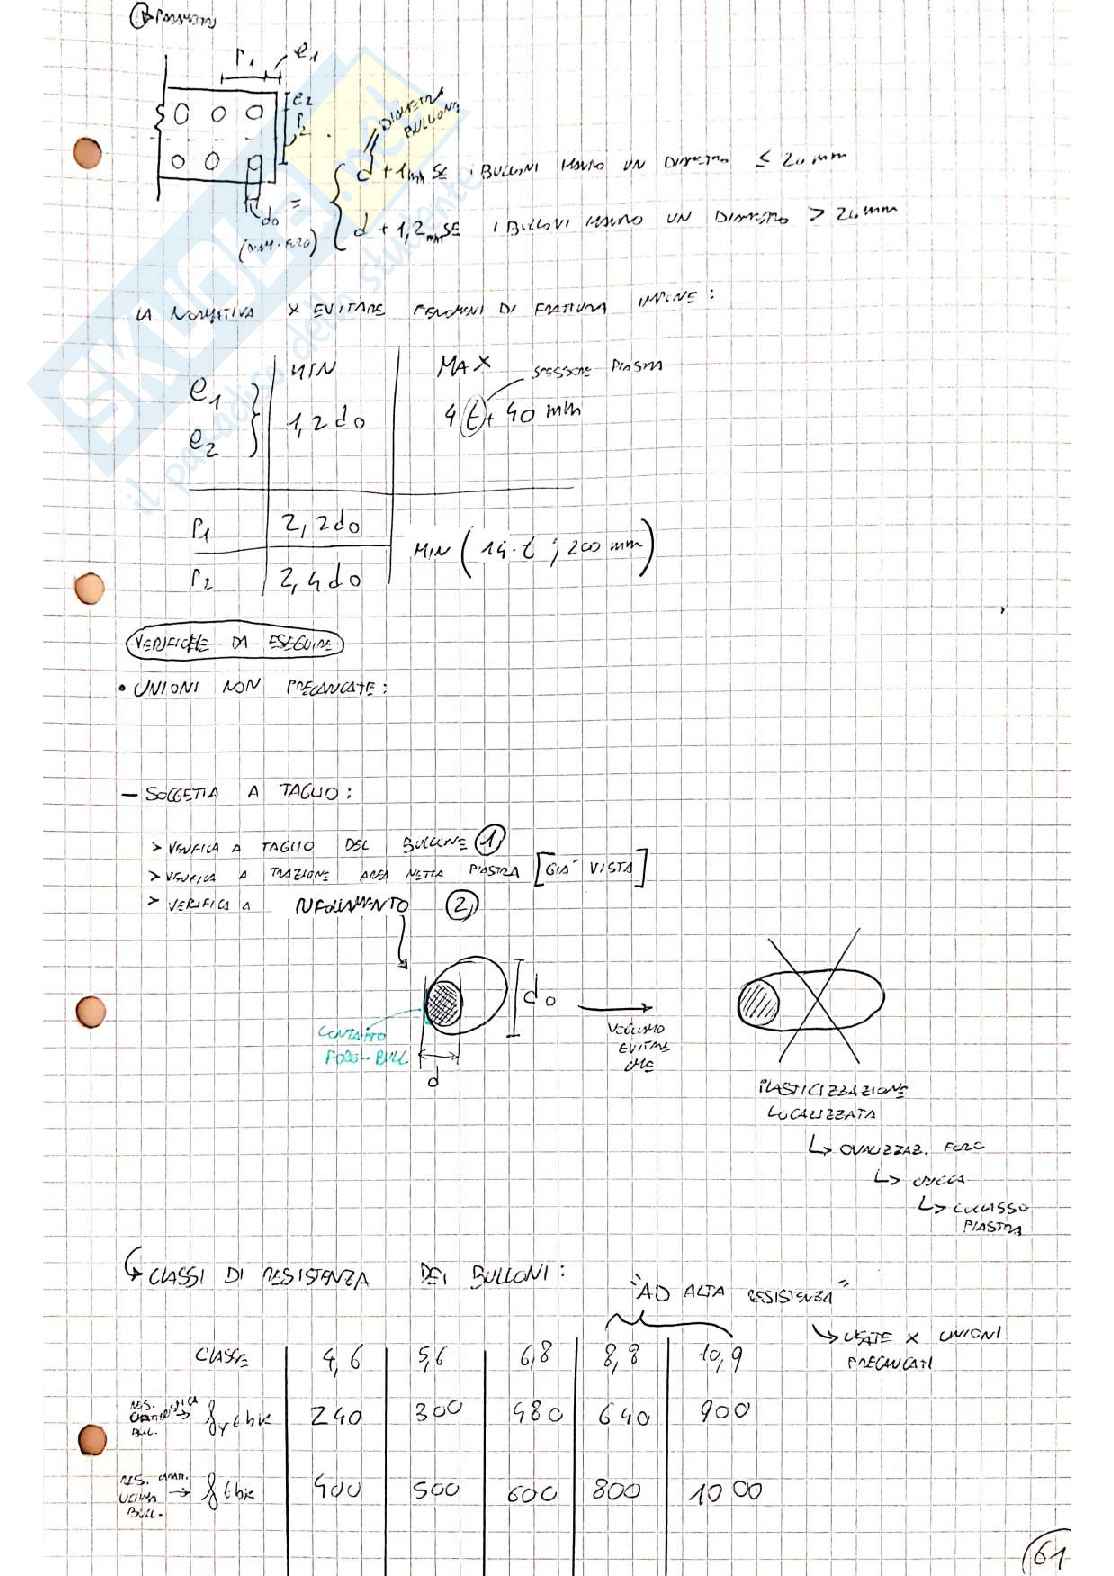 P1
e1
e2
P2
DIAMETRO
BULLONE
d + 1mm SE i BULLONI HANNO UN DIAMETRO ≤ 20 mm
d0 =
(DIAM. FORO)
d + 1,2mm SE i BULLONI HANNO UN DIAMETRO > 20 mm
LA NORMATIVA X EVITARE FENOMENI DI FRATTURA IMPONE:
MIN MAX SPESSORE PIASTRA
e1
e2
1,2 d0 4 t + 40 mm
P1 2,2 d0
MIN (14·t ; 200 mm)
P2 2,4 d0
VERIFICHE DA ESEGUIRE
• UNIONI NON PRECARICATE:
- SOGGETTA A TAGLIO:
> VERIFICA A TAGLIO DEL BULLONE 1)
> VERIFICA A TRAZIONE AREA NETTA PIASTRA [GIA' VISTA]
> VERIFICA A RIFOLLAMENTO 2)
d0
CONTATTO
FORO-BULL
d
VOGLIAMO
EVITARE
CHE
PLASTICIZZAZIONE
LOCALIZZATA
↳ OVALIZZAZ. FORO
↳ CRICCA
↳ COLLASSO
PIASTRA
↳ CLASSI DI RESISTENZA DEI BULLONI:
"AD ALTA RESISTENZA"
↳ USATE X UNIONI
PRECARICATI
CLASSE 4,6 5,6 6,8 8,8 10,9
RES.
CARATTERISTICA → fy tbk 240 300 480 640 900
BULL.
RES. CARATT.
ULTIMA → f tbk 400 500 600 800 1000
BULL.
61
SKUOLA.net
il paradiso dello studente